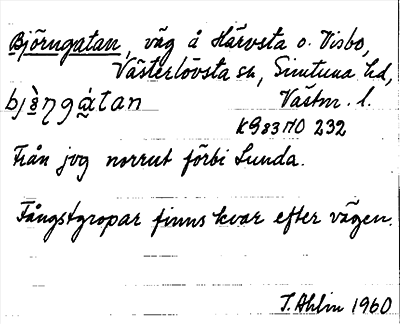 Björngatan, väg å Härvsta o. Visbo,
Västerlövsta sn, Simtuna hd,
bjὲηgàtan Västm. l.
KG83 NO 232
Från jvg norrut förbi Lunda.
Fångstgropar finns kvar efter vägen.
T. Ahlin 1960